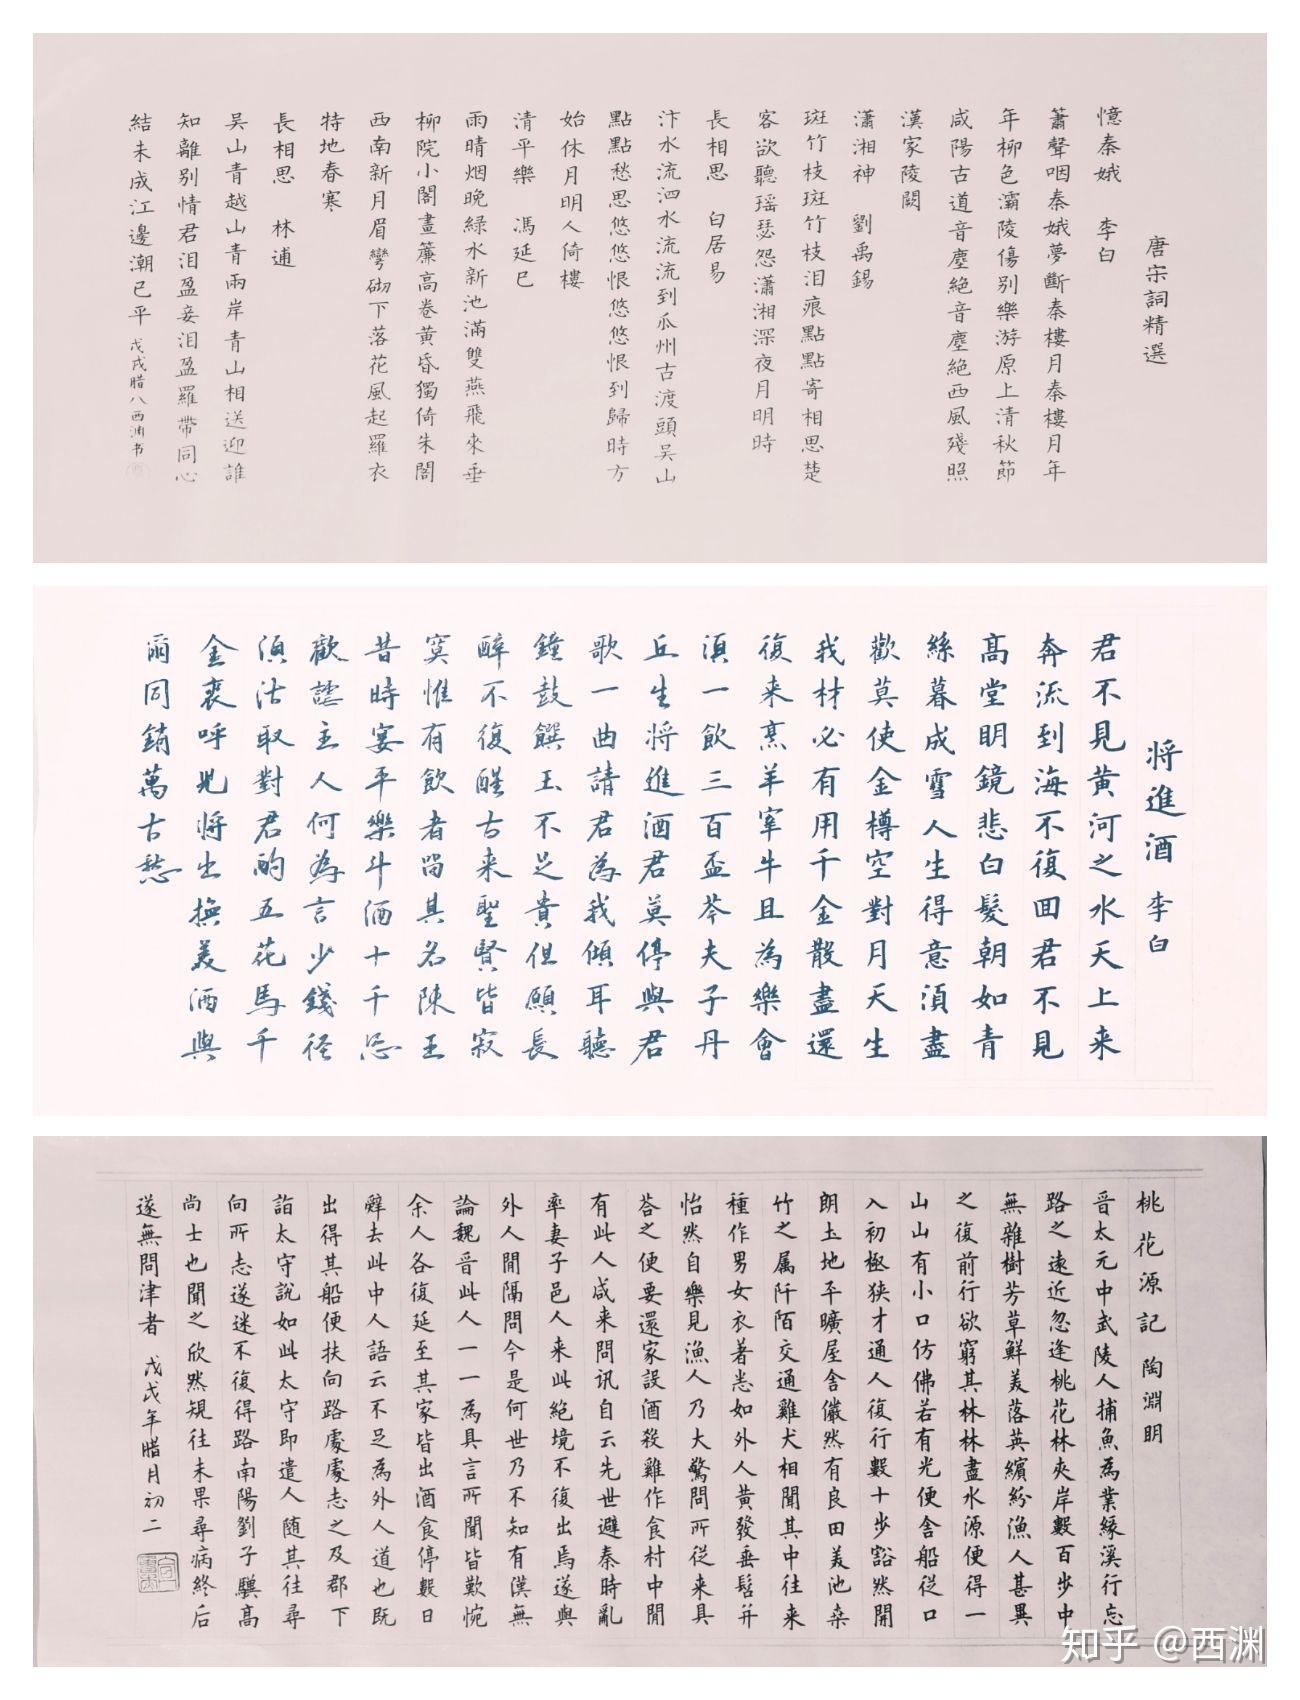 唐宋詞精選
憶秦娥 李白
簫聲咽秦娥夢斷秦樓月秦樓月年
年柳色灞陵傷别樂游原上清秋節
咸陽古道音塵絶音塵絶西風殘照
漢家陵闕
瀟湘神 劉禹錫
斑竹枝斑竹枝泪痕點點寄相思楚
客欲聽瑶瑟怨瀟湘深夜月明時
長相思 白居易
汴水流泗水流流到瓜州古渡頭吴山
點點愁思悠悠恨悠悠恨到歸時方
始休月明人倚樓
清平樂 馮延巳
雨晴烟晚綠水新池滿雙燕飛來垂
柳院小閣畫簾高卷黄昏獨倚朱閣
西南新月眉彎砌下落花風起羅衣
特地春寒
長相思 林逋
吴山青越山青兩岸青山相送迎誰
知離别情君泪盈妾泪盈羅帶同心
結未成江邊潮已平 戊戌腊八西渊书
将進酒 李白
君不見黄河之水天上来
奔流到海不復回君不見
高堂明鏡悲白髮朝如青
絲暮成雪人生得意須盡
歡莫使金樽空對月天生
我材必有用千金散盡還
復来烹羊宰牛且為樂會
須一飲三百盃岑夫子丹
丘生将進酒君莫停與君
歌一曲請君為我傾耳聽
鐘鼓饌玉不足貴但願長
醉不復醒古来聖賢皆寂
寞惟有飲者留其名陳王
昔時宴平樂斗酒十千恣
歡謔主人何為言少錢徑
須沽取對君酌五花馬千
金裘呼兒将出換美酒與
爾同銷萬古愁
桃花源記 陶淵明
晋太元中武陵人捕魚為業緣溪行忘
路之遠近忽逢桃花林夾岸數百步中
無雜樹芳草鮮美落英繽紛漁人甚異
之復前行欲窮其林林盡水源便得一
山山有小口仿佛若有光便舍船從口
入初極狹才通人復行數十步豁然開
朗土地平曠屋舍儼然有良田美池桑
竹之属阡陌交通雞犬相聞其中往来
種作男女衣著悉如外人黄發垂髫并
怡然自樂見漁人乃大驚問所從来具
答之便要還家設酒殺雞作食村中聞
有此人咸来問訊自云先世避秦時亂
率妻子邑人来此絶境不復出焉遂與
外人間隔問今是何世乃不知有漢無
論魏晋此人一一為具言所聞皆歎惋
余人各復延至其家皆出酒食停數日
辭去此中人語云不足為外人道也既
出得其船便扶向路處處志之及郡下
詣太守説如此太守即遣人随其往尋
向所志遂迷不復得路南陽劉子驥高
尚士也聞之欣然規往未果尋病終后
遂無問津者 戊戌年腊月初二
知乎 @西渊